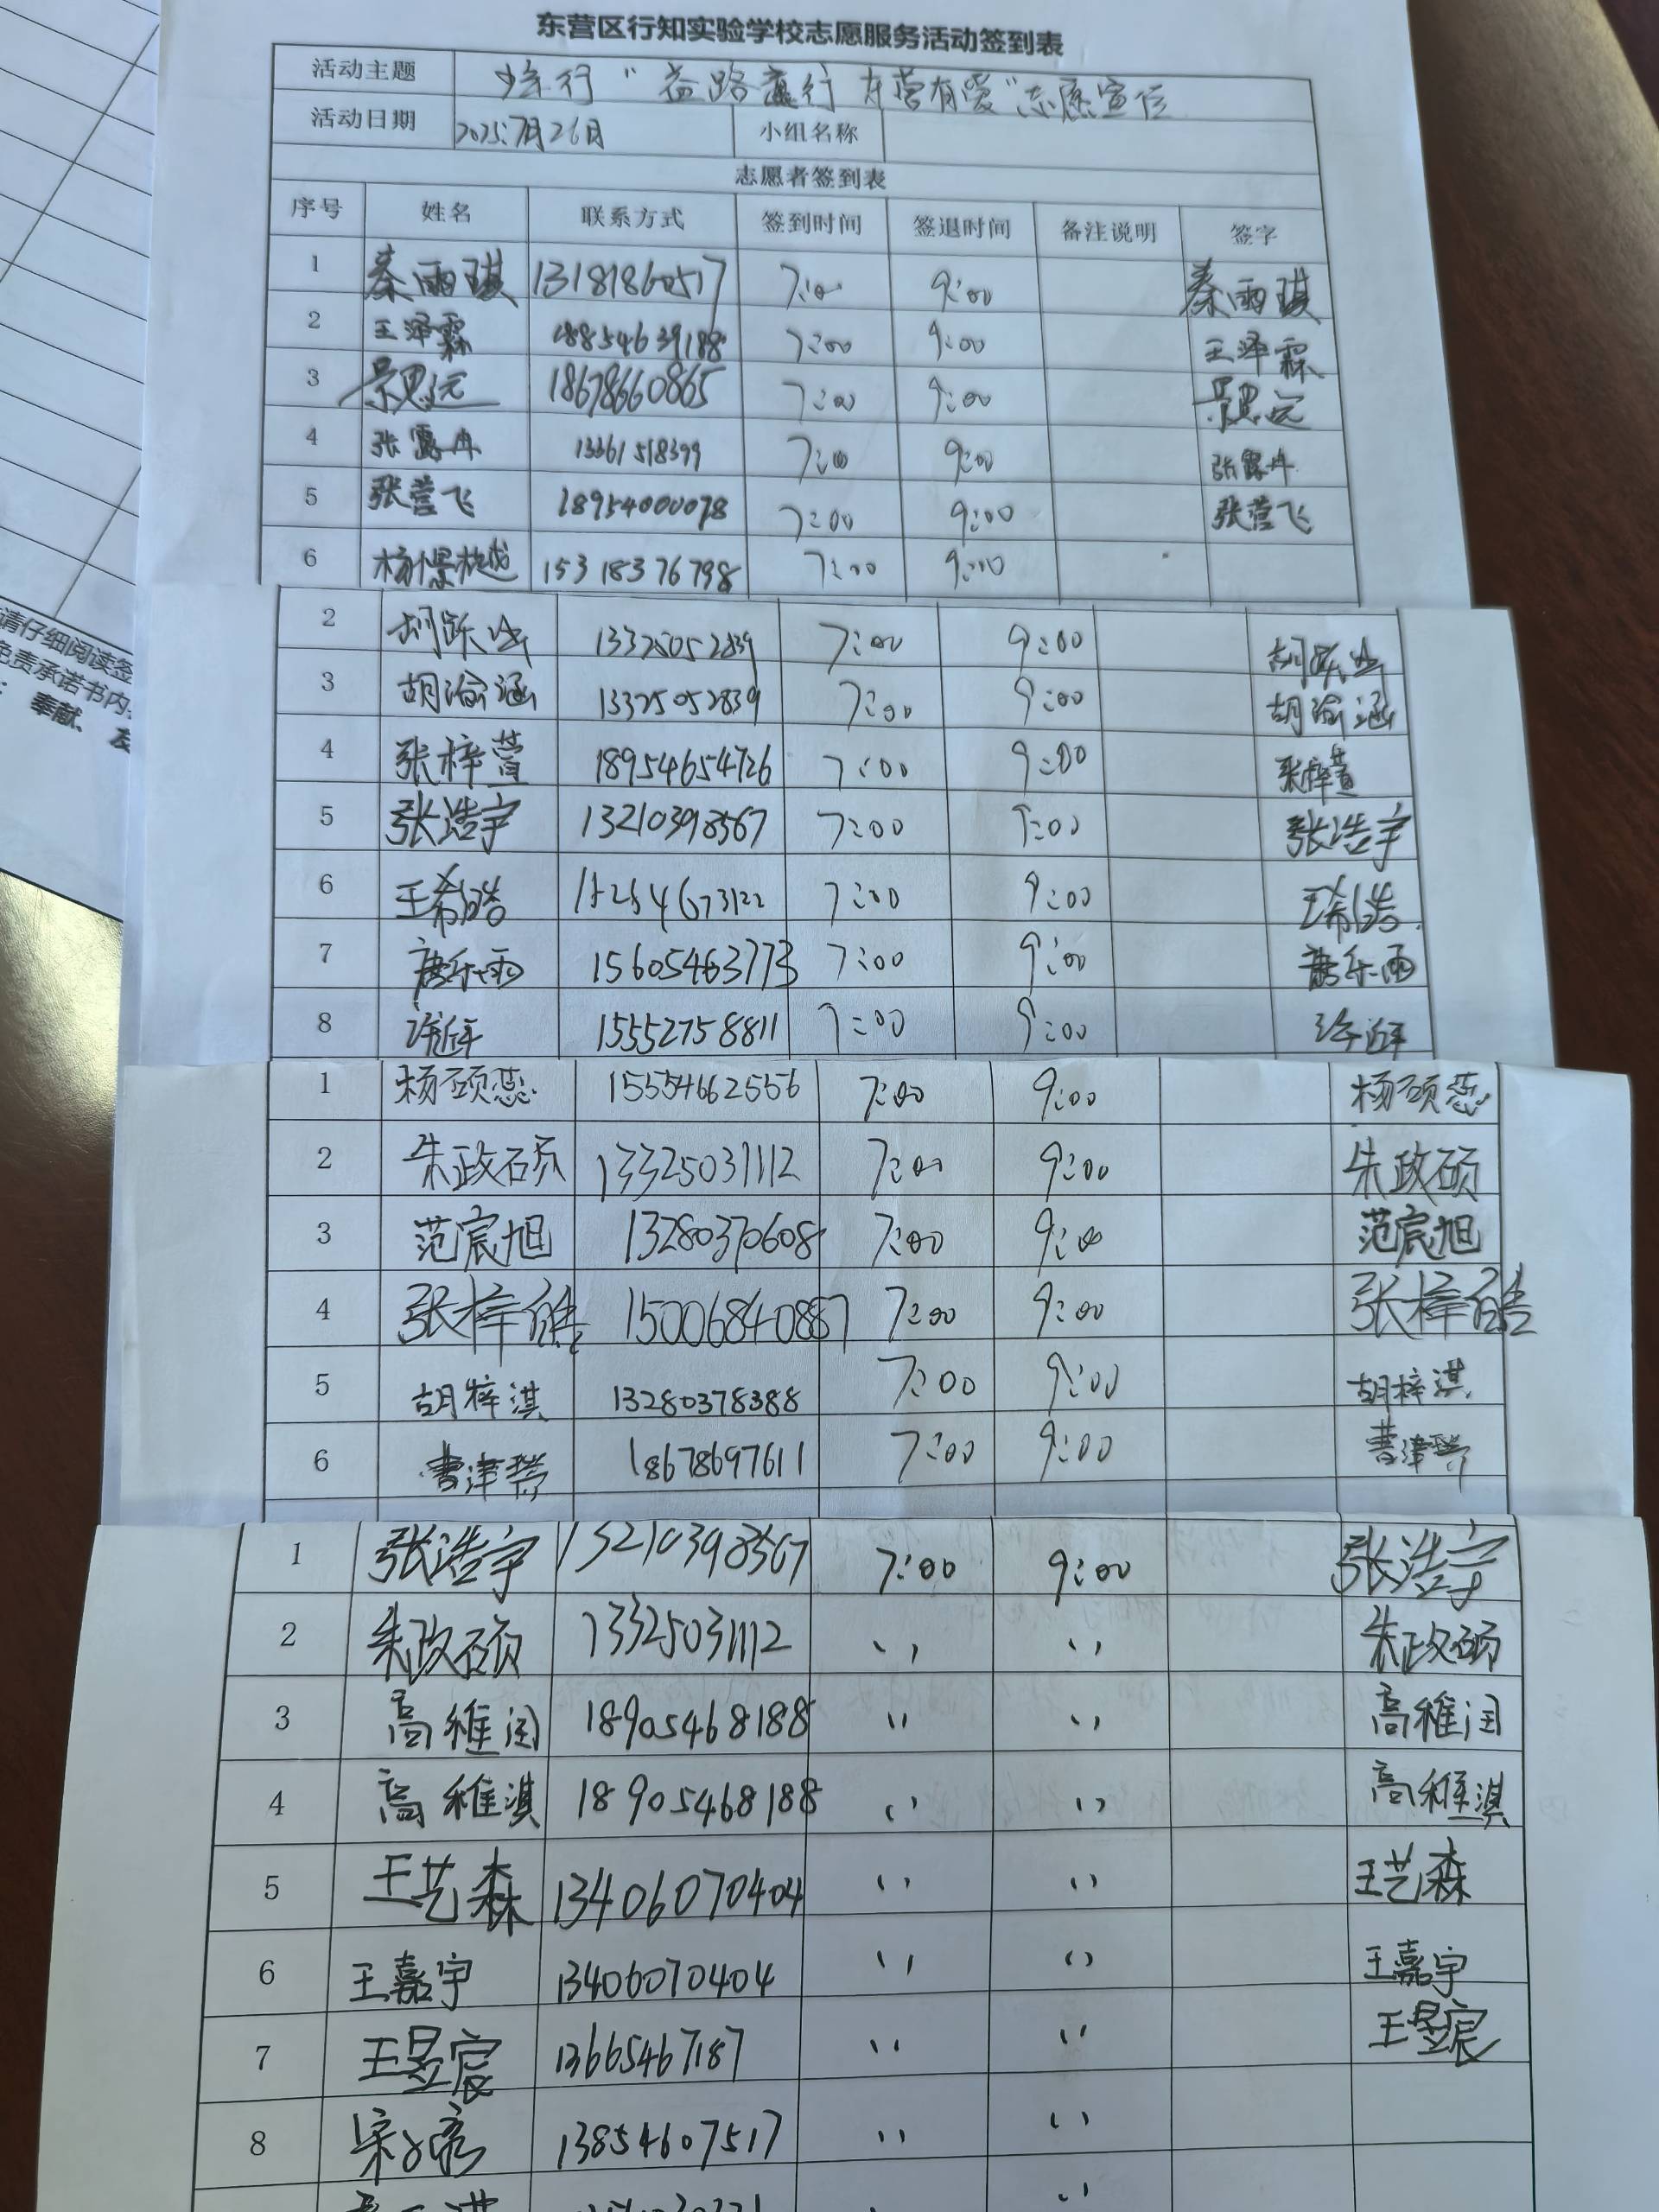 东营区行知实验学校志愿服务活动签到表
活动主题 行"益路 行 东营有爱"志愿宣传
活动日期 2025.7月26日 小组名称
志愿者签到表
序号 姓名 联系方式 签到时间 签退时间 备注说明 签字
1 秦雨琪 13181860517 7:00 9:00 秦雨琪
2 王泽霖 18854639188 7:00 9:00 王泽霖
3 景思远 18678660865 7:00 9:00 景思远
4 张露丹 13361518399 7:00 9:00 张露丹
5 张营飞 18954000078 7:00 9:00 张营飞
6 杨憬樾 15318376798 7:00 9:00
2 胡跃 13325052839 7:00 9:00 胡跃
3 胡渝涵 13325052839 7:00 9:00 胡渝涵
4 张梓萱 18954654726 7:00 9:00 张梓萱
5 张浩宇 13210398567 7:00 9:00 张浩宇
6 王希皓 7:00 9:00 王希皓
7 唐乐雨 15605463773 7:00 9:00 唐乐雨
8 15552758811 7:00 9:00
1 杨硕蕊 15554662556 7:00 9:00 杨硕蕊
2 朱政硕 13325031112 7:00 9:00 朱政硕
3 范宸旭 13280370608 7:00 9:00 范宸旭
4 张梓皓 15006840887 7:00 9:00 张梓皓
5 胡梓淇 13280378388 7:00 9:00 胡梓淇
6 曹津 18678697611 7:00 9:00 曹津
1 张浩宇 13210398567 7:00 9:00 张浩宇
2 朱政硕 13325031112 〃 〃 朱政硕
3 高稚闰 18905468188 〃 〃 高稚闰
4 高稚淇 18905468188 〃 〃 高稚淇
5 王艺森 13406070404 〃 〃 王艺森
6 王嘉宇 13406070404 〃 〃 王嘉宇
7 王昱宸 13665467187 〃 〃 王昱宸
8 宋 13854607517 〃 〃
请仔细阅读签
免责承诺书内
奉献、友